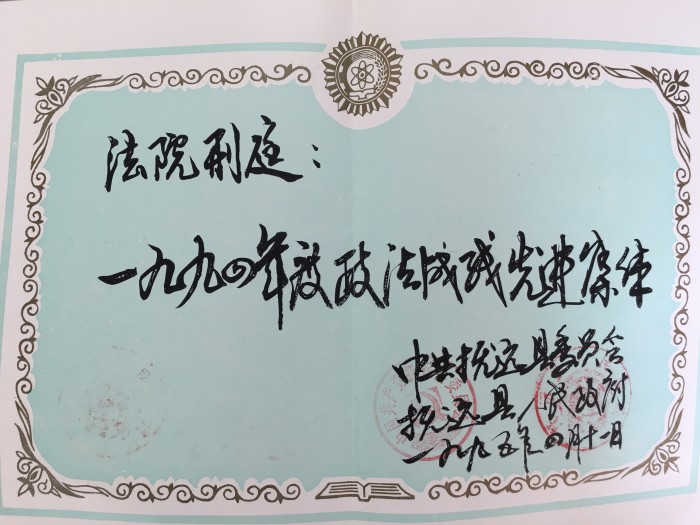 法院刑庭：
一九九四年度政法战线先进集体
中共抚远县委员会
抚远县人民政府
一九九五年四月十一日